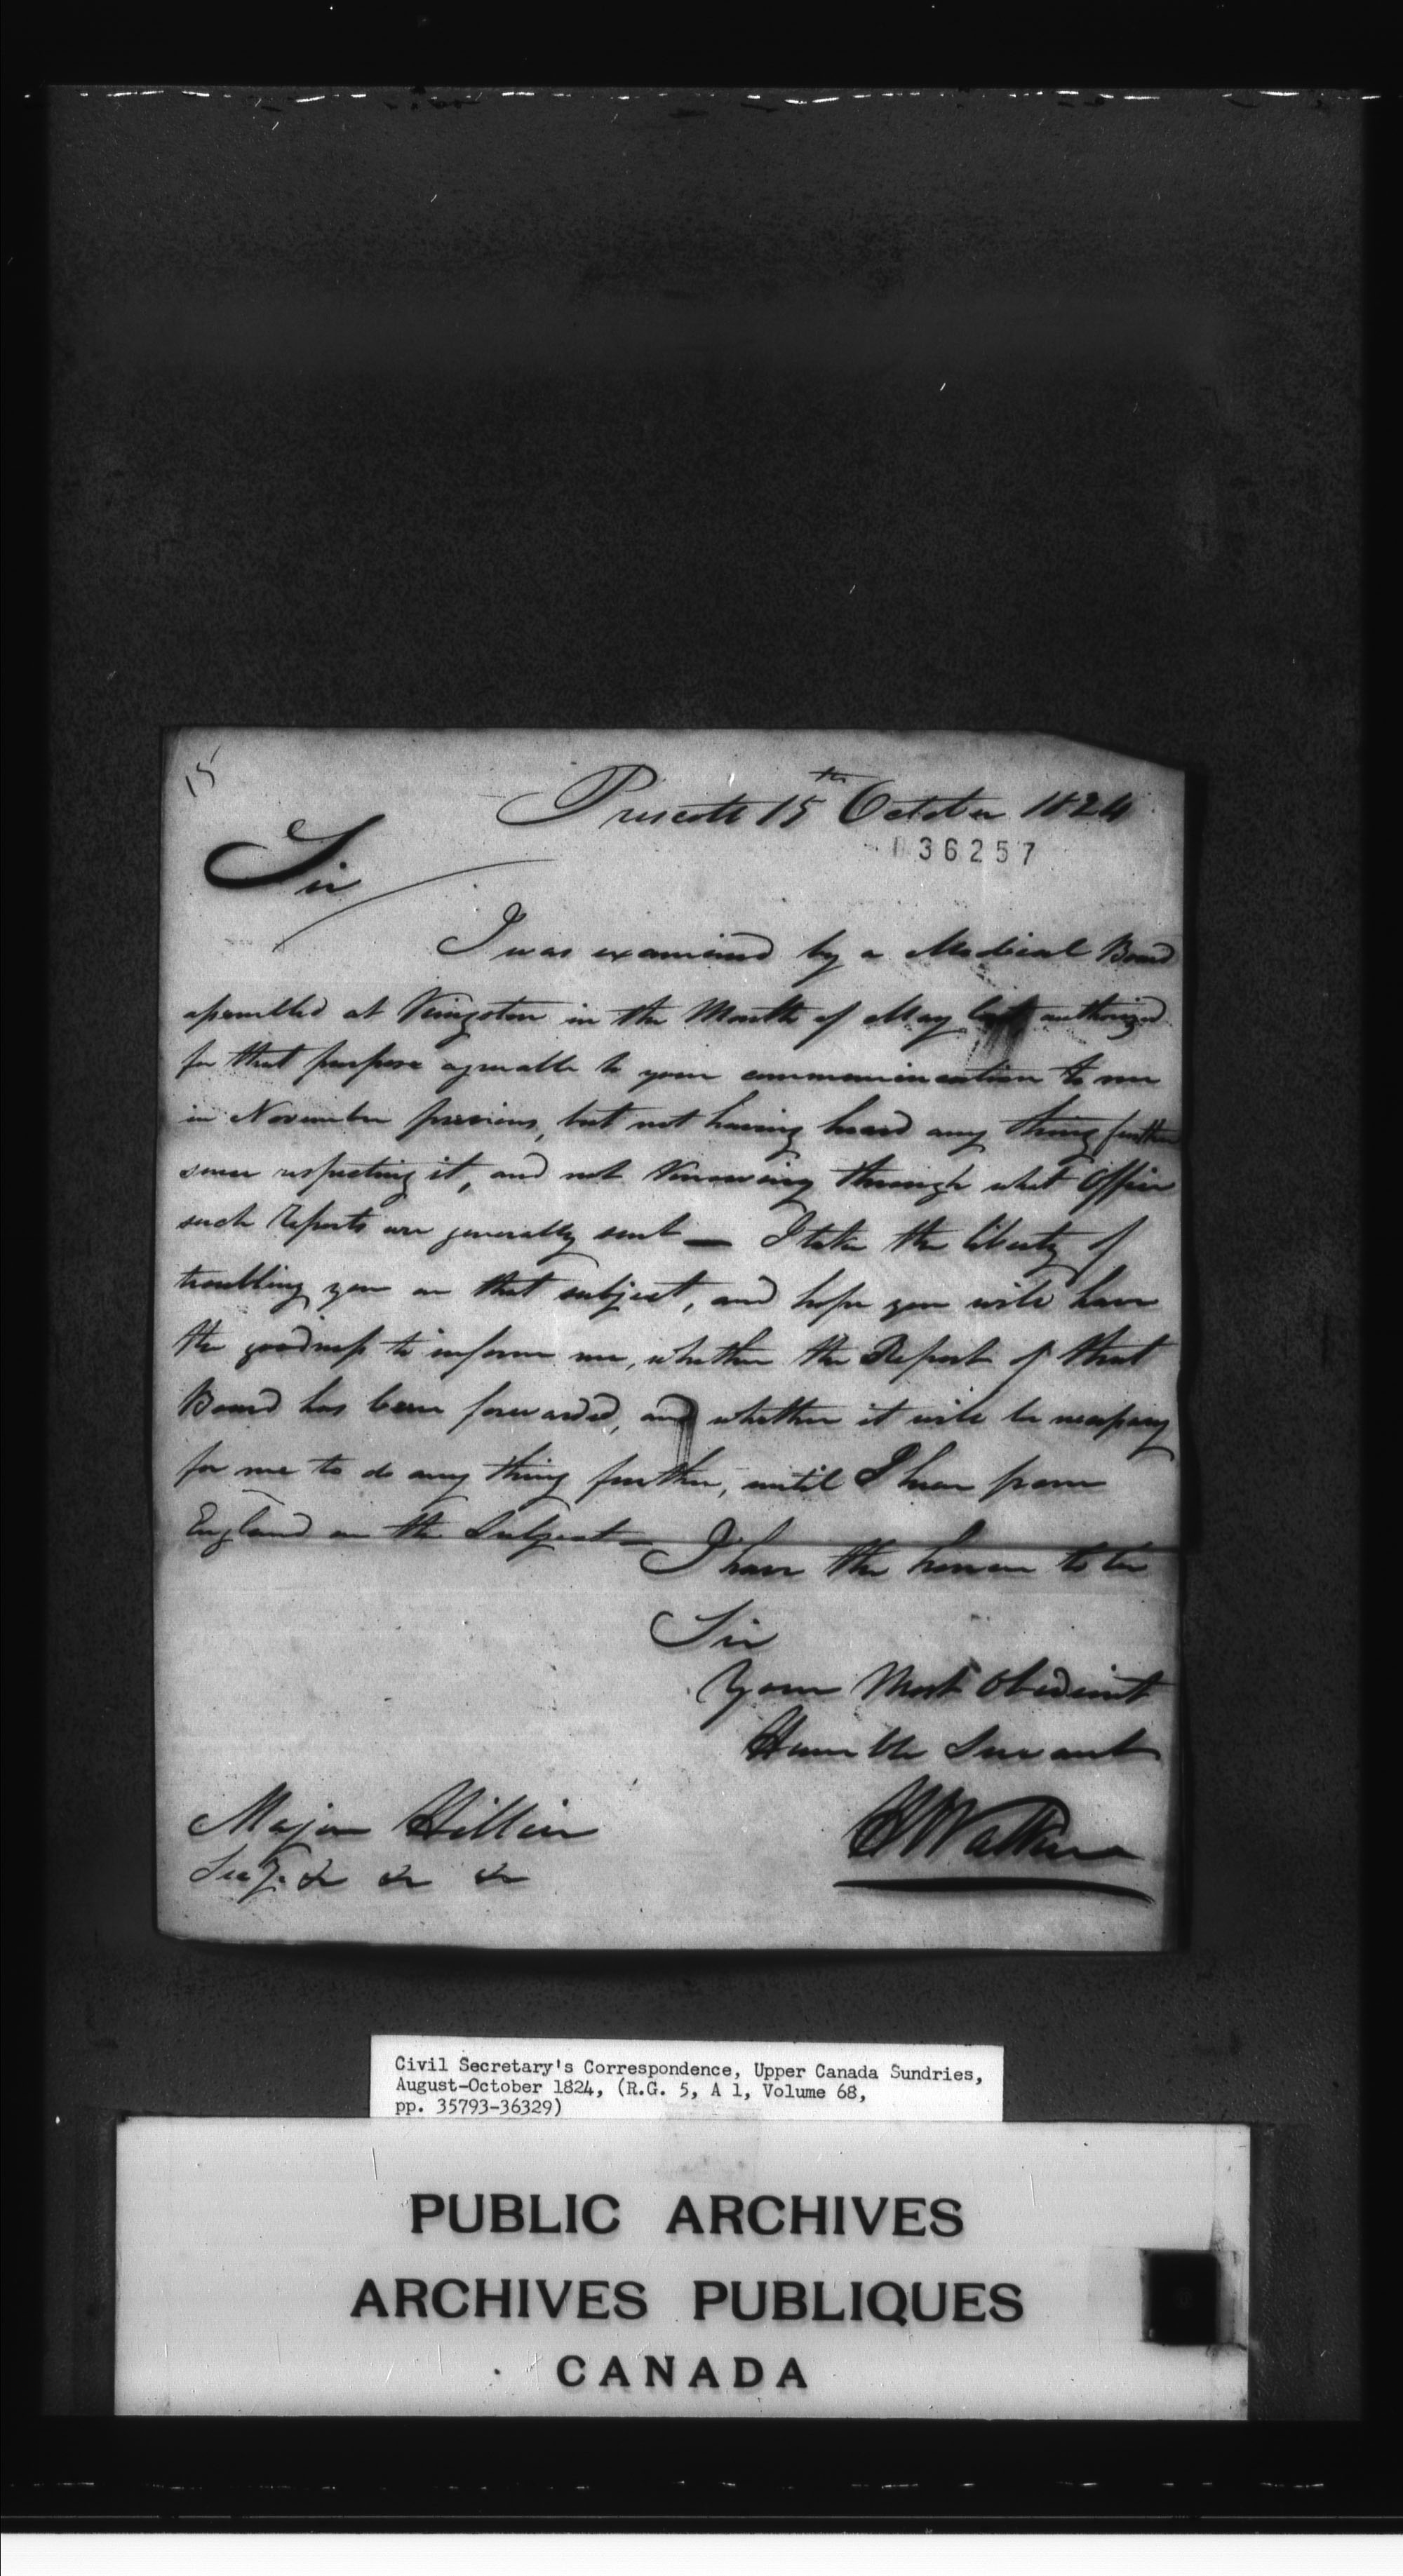 15
Prescott 15th October 1824
036257
Sir
I was examined by a Medical Board
assembled at Kingston in the Month of May last authorized
for that purpose agreable to your communication to me
in November previous, but not having heard any thing further
since respecting it, and not knowing through what Office
such Reports are generally sent — I take the liberty of
troubling you on that subject, and hope you will have
the goodness to inform me, whether the Report of that
Board has been forwarded, and whether it will be necessary
for me to do any thing further, until I hear from
England on the Subject —
I have the honor to be
Sir
Your Most Obedient
Humble Servant
Walker
Major Hillier
Secy. &c &c &c
Civil Secretary's Correspondence, Upper Canada Sundries,
August-October 1824, (R.G. 5, A 1, Volume 68,
pp. 35793-36329)
PUBLIC ARCHIVES
ARCHIVES PUBLIQUES
CANADA